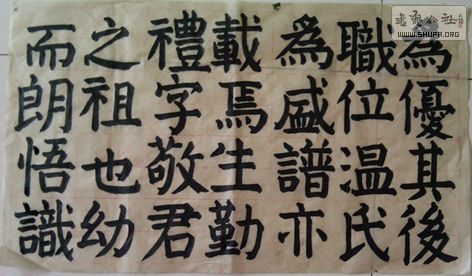 為優其後
職位温氏
為盛譜亦
載焉生勤
禮字敬君
之祖也幼
而朗悟識
書艺公社
WWW.SHUFA.ORG